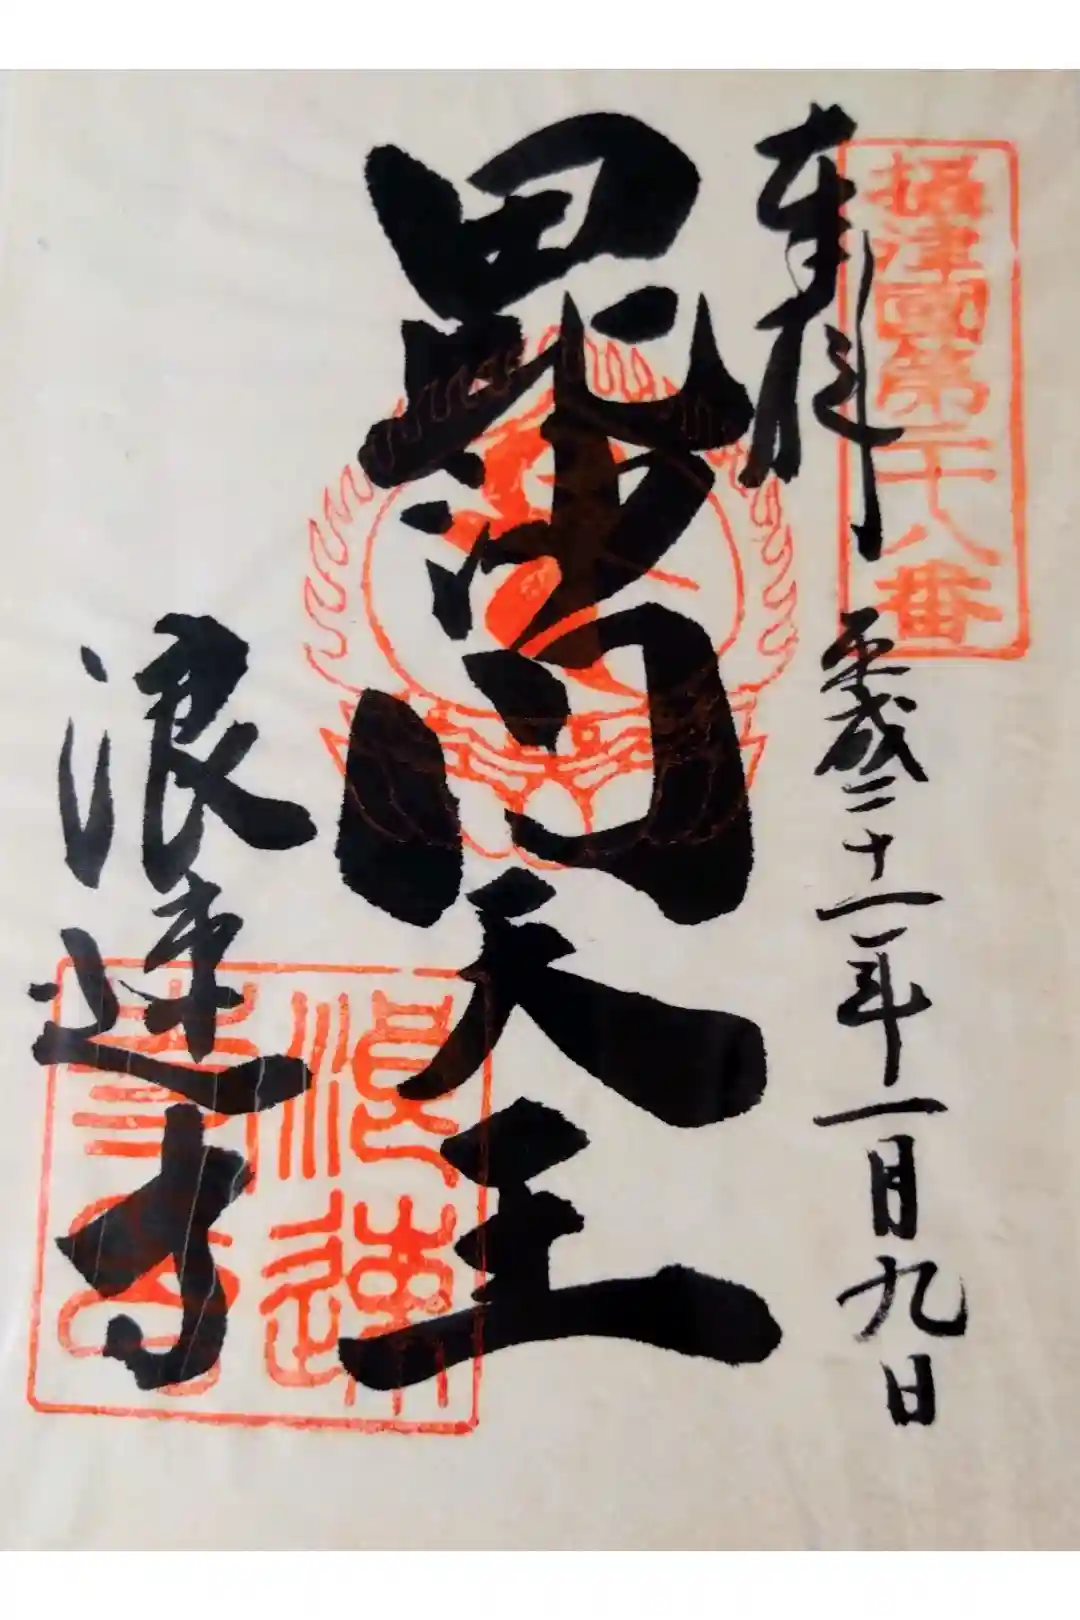 攝津國第二十八番
奉拝
平成二十一年一月九日
毘沙門天王
浪速寺
浪速